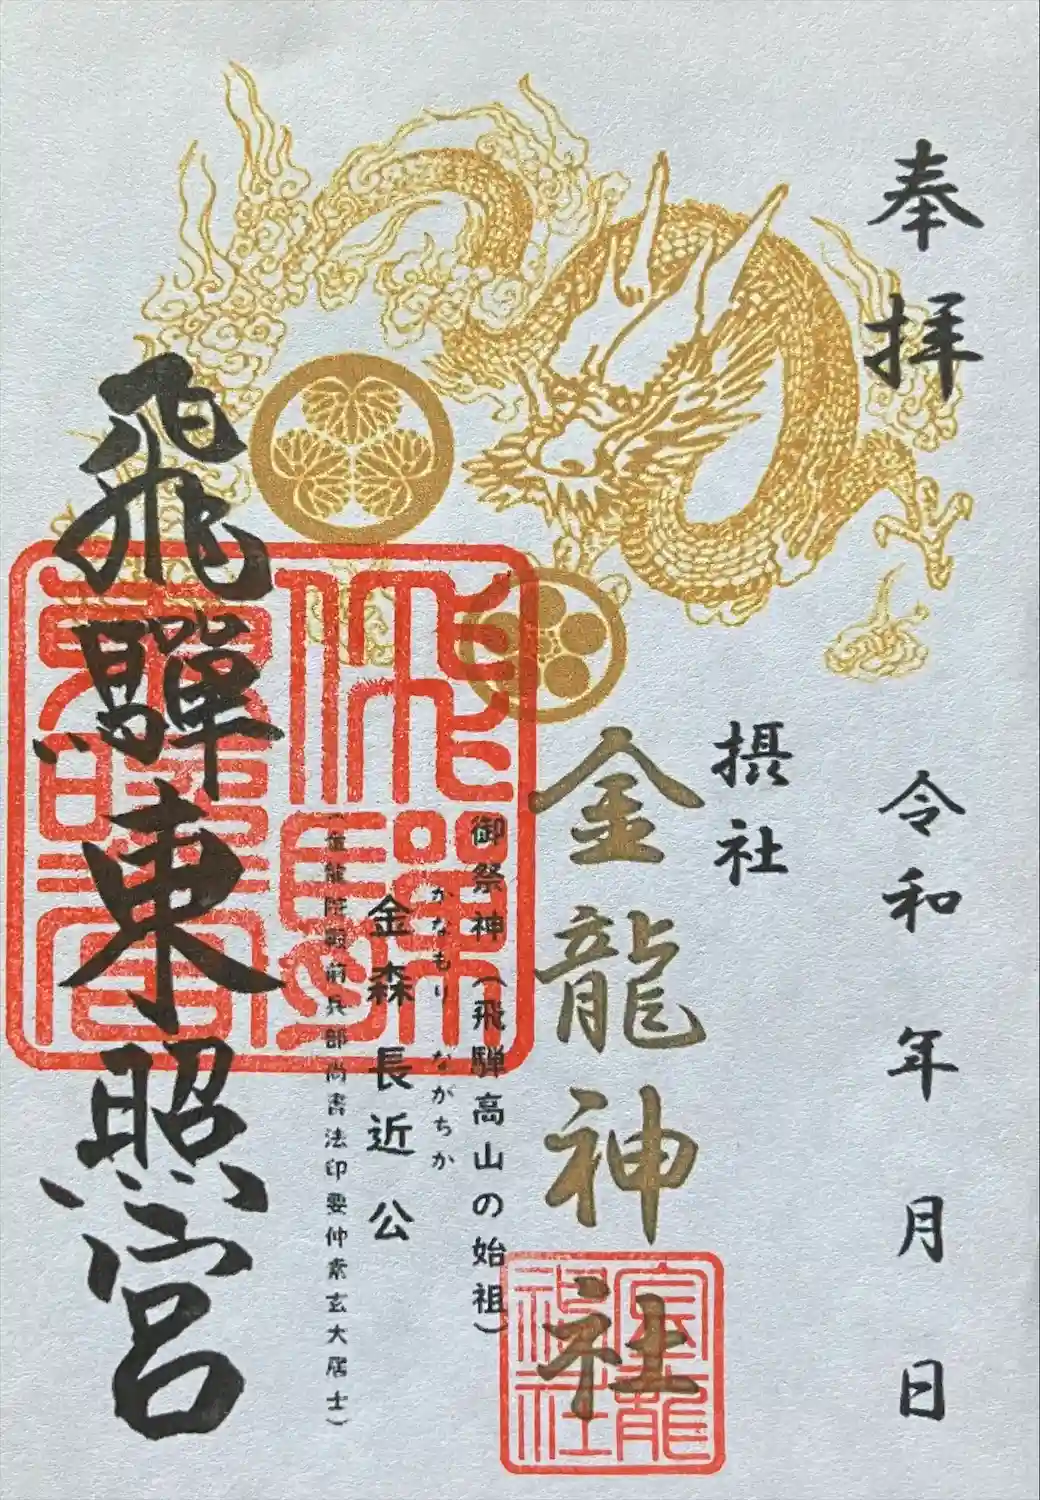 奉拝
令和 年 月 日
摂社
金龍神社
御祭神(飛騨高山の始祖)
かなもり ながちか
金森 長近 公
(金龍院殿前兵部尚書法印要仲素玄大居士)
飛騨東照宮
金龍
神社